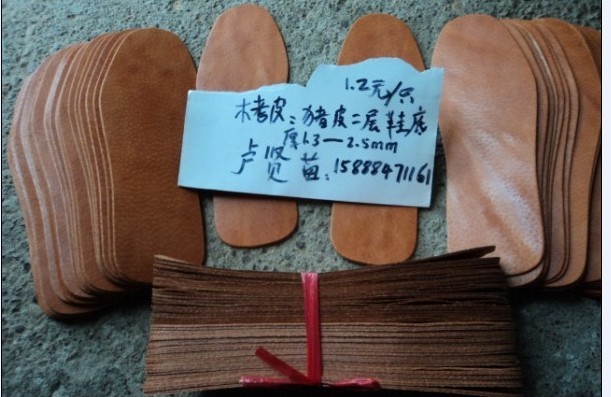 1.2元/只
木烤皮:猪皮二层鞋底
厚1.3—2.5mm
卢贤苗:15888471161